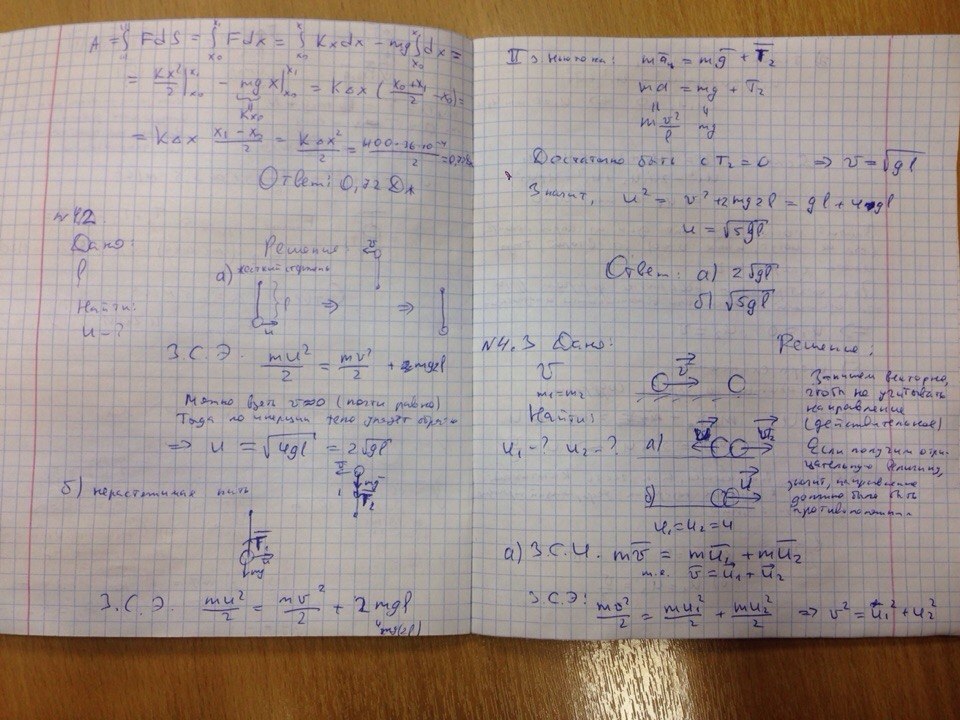 A = ∫ FdS = ∫ Fdx = ∫ Kxdx - mg ∫ dx =
= Kx²/2 |x₁ x₀ - mg x |x₁ x₀ = KΔx ( (x₀+x₁)/2 - x₀ ) =
Kx₀
= KΔx (x₁ - x₀)/2 = KΔx²/2 = 400·36·10⁻⁴/2 = 0,72
Ответ: 0,72 Дж
№ 4.2
Дано:
l
Найти:
u - ?
Решение:
v
а) жесткий стержень
l
u
⇒ ⇒
З.С.Э. mu²/2 = mv²/2 + 2mgl
Можно взять v≈0 (почти равно)
Тогда по инерции тело упадёт обратно
⇒ u = √4gl = 2√gl
б) нерастяжимая нить
v
mg
T₂
T₁
u
mg
З.С.Э. mu²/2 = mv²/2 + 2mgl
mg(2l)
II з. Ньютона: ma = mg + T₂
ma = mg + T₂
mv²/l mg
Достаточно быть с T₂ = 0 ⇒ v = √gl
Значит, u² = v² + 2mg2l = gl + 4gl
u = √5gl
Ответ: а) 2√gl
б) √5gl
№4.3 Дано:
v
m₁ = m₂
Найти:
u₁ - ? u₂ - ?
Решение:
v
а) u₁ u₂
б) u
u₁ = u₂ = u
Запишем векторно,
чтобы не учитывать
направление
(действительное)
Если получим отри-
цательную величину,
значит, направление
должно было быть
противоположным
а) З.С.И. mv = mu₁ + mu₂
т.е. v = u₁ + u₂
З.С.Э: mv²/2 = mu₁²/2 + mu₂²/2 ⇒ v² = u₁² + u₂²